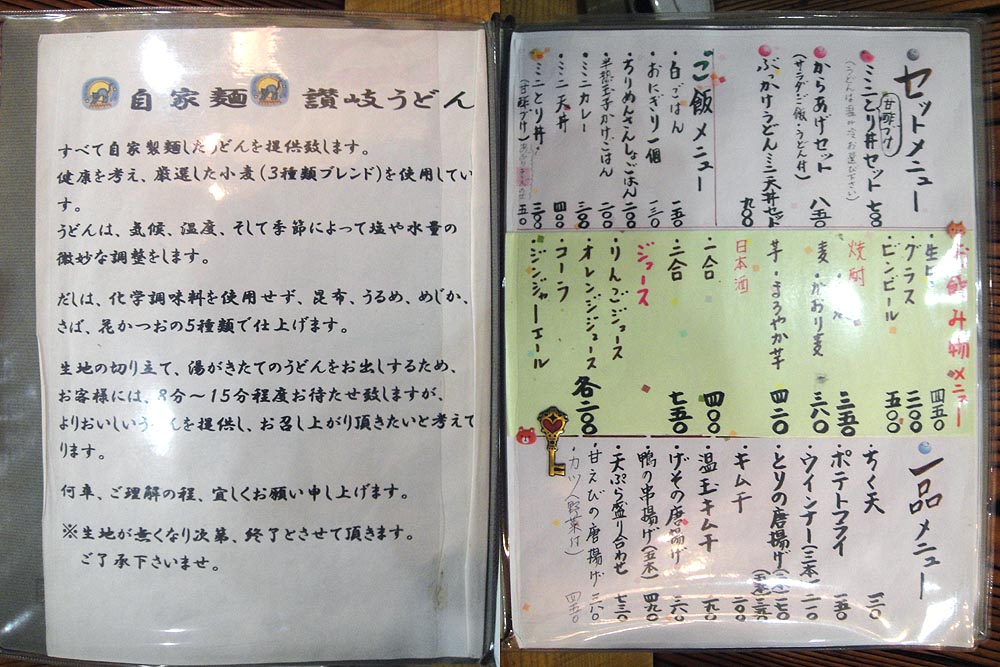 自家麺 讃岐うどん
すべて自家製麺したうどんを提供致します。
健康を考え、厳選した小麦(3種類ブレンド)を使用してい
す。
うどんは、気候、温度、そして季節によって塩や水量の
微妙な調整をします。
だしは、化学調味料を使用せず、昆布、うるめ、めじか、
さば、花かつおの5種類で仕上げます。
生地の切り立て、湯がきたてのうどんをお出しするため、
お客様には、8分〜15分程度お待たせ致しますが、
よりおいしいうどんを提供し、お召し上がり頂きたいと考えて
ります。
何卒、ご理解の程、宜しくお願い申し上げます。
※生地が無くなり次第、終了とさせて頂きます。
ご了承下さいませ。
セットメニュー
甘酢づけ
・ミニとり丼セット 七〇〇
(うどんは温か冷お選び下さい)
・からあげセット 八五〇
(サラダ・ご飯・うどん付)
・ぶっかけうどんミニ天丼セット 九〇〇
ご飯メニュー
・白ごはん 一五〇
・おにぎり一個 一三〇
・ちりめんさんしょごはん 二〇〇
・半熟玉子かけごはん 二〇〇
・ミニカレー 三〇〇
・ミニ天丼 四〇〇
・ミニとり丼 三〇〇
(甘酢づけ) 五〇
お飲み物メニュー
・生ビ 四五〇
・グラス 三〇〇
・ビンビール 五〇〇
焼酎
三五〇
麦・かおり麦 三六〇
芋・まろやか芋 四二〇
日本酒
・一合 四〇〇
・二合 七五〇
ジュース
・りんごジュース
・オレンジジュース 各二〇〇
・コーラ
・ジンジャーエール
一品メニュー
・ちく天
・ポテトフライ 一五〇
・ウインナー(三本) 二一〇
・とりの唐揚げ
・キムチ 二〇〇
・温玉キムチ
・げその唐揚げ 三六〇
・鴨の串揚げ(五本) 四九〇
・天ぷら盛り合わせ 七三〇
・甘えびの唐揚げ 三八〇
四五〇